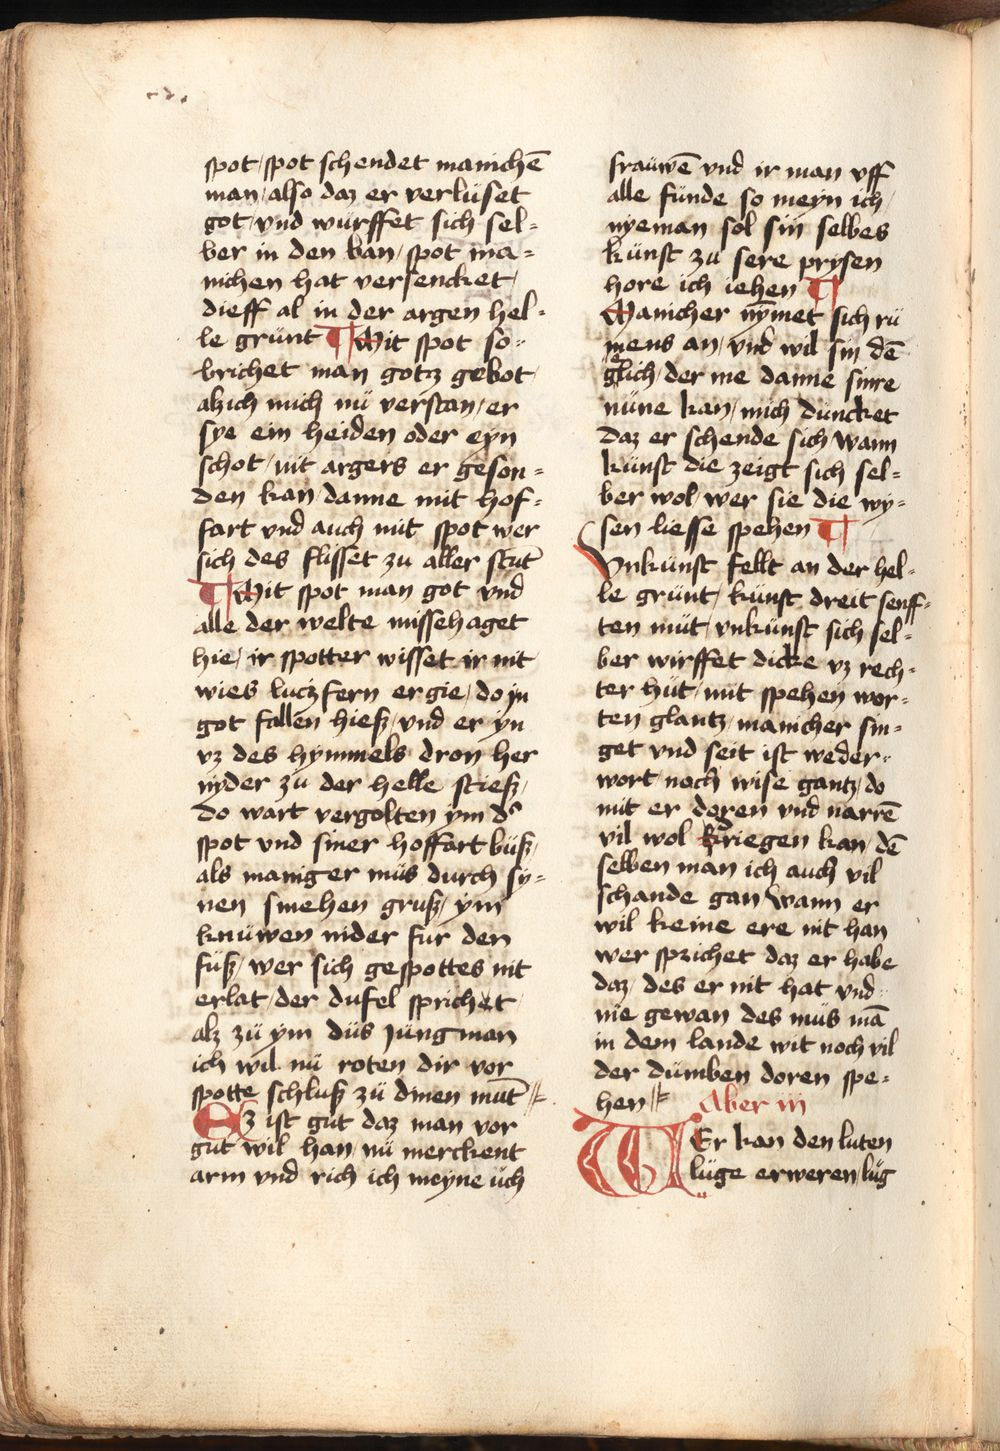 spot / spot schendet manichē
man / also daz er verlüset
got / vnd würffet sich sel=
ber in den ban / spot ma=
nichen hat versencket /
dieff al in der argen hel=
le grünt ¶ Mit spot so=
brichet man gotz gebot /
alzich mich nü verstan / er
sye ein heiden oder eyn
schot / nit argers er geson=
den kan / danne mit hof=
fart vnd auch mit spot wer
sich des flisset zu aller stūt
¶ Mit spot man got vnd
alle der welte missehaget
hie / ir spotter wisset ir nit
wies luczfern ergie / do jn
got fallen hieß / vnd er yn
vz des hymmels dron her
nyder zu der helle stieß /
do wart vergolten ym d'
spot vnd siner hoffart büß /
als maniger müs durch sy=
nen smehen gruß / ym
knüwen nider fur den
füß / wer sich gespottes nit
erlat / der dufel sprichet
alz zü ym düs jüngman
ich wil nü roten dir vor
spotte schluß zü dinen müt
Ez ist güt daz man vor
güt wil han / nü merckent
arm vnd rich ich meyne üch
frauwē vnd ir man vff
alle fünde so meyn ich /
nyeman sol sin selbes
künst zü sere prysen
hore ich iehen ¶
Manicher nymet sich rü
mens an / vnd wil sin dē
glich / der me danne sinre
nüne kan / mich düncket
daz er schende sich wann
künst die zeigt sich sel=
ber wol / wer sie die wy=
sen liesse spehen ¶
Vnkünst fellt an der hel=
le grünt / künst dreit senff=
ten müt / vnkünst sich sel=
ber wirffet dicke vz rech=
ter hüt / mit spehen wor=
ten glantz / manicher sin=
get vnd seit ist weder=
wort noch wise gantz / do
mit er doren vnd narrē
vil wol kriegen kan / dē
selben man ich auch vil
schande gan wann er
wil keine ere nit han
wer sprichet daz er habe
daz / des er nit hat vnd
nie gewan des müs mā
in dem lande wit noch vil
der dümben doren spe=
hen Aber iij
WEr kan den luten
lüge erweren / lüg